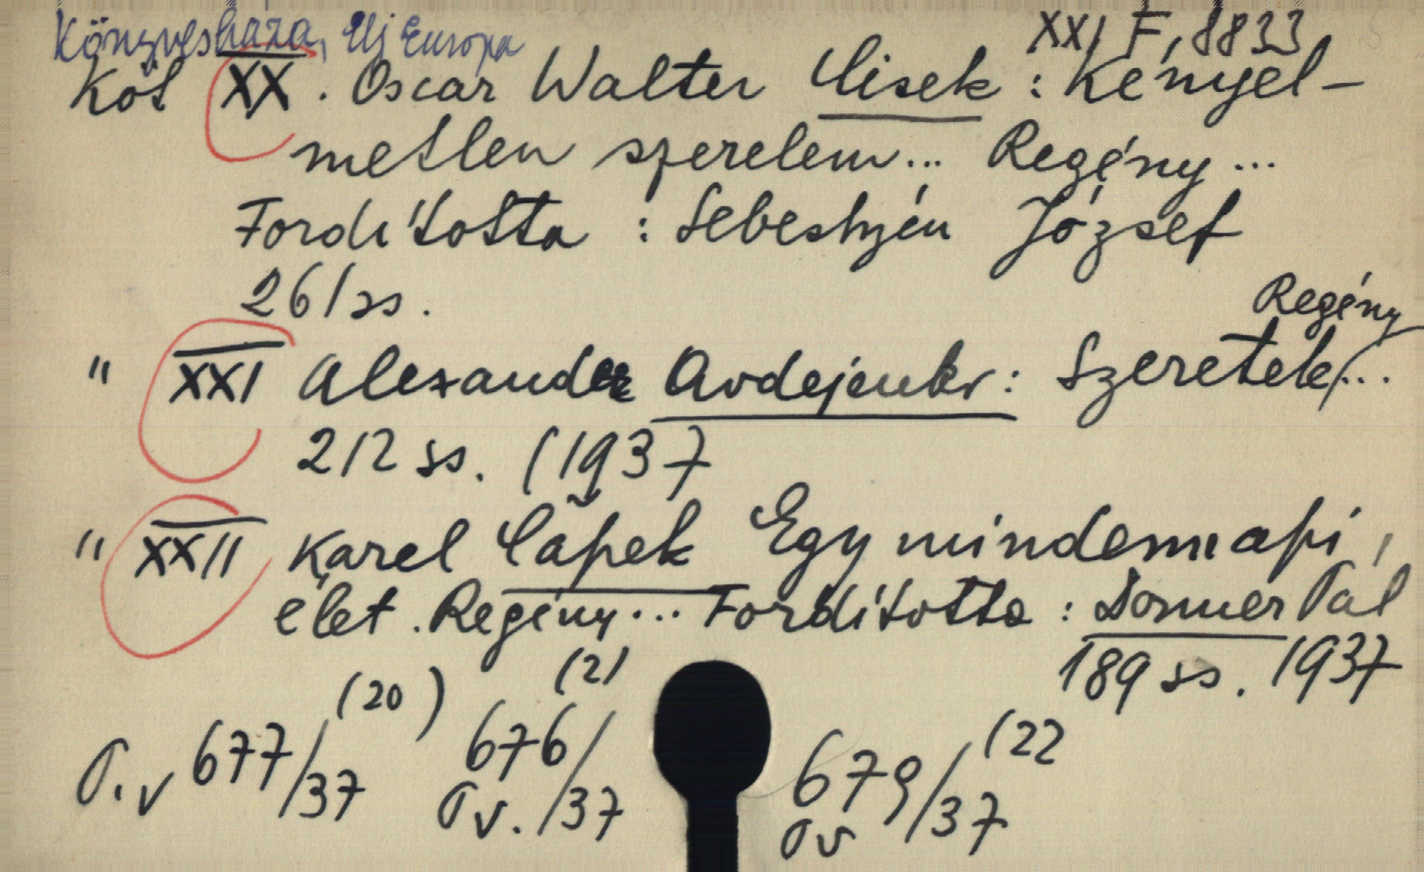 Könyvesháza, Uj Europa
XXI F, 8833
Köt XX. Oscar Walter Cisek : Kényel-
metlen szerelem... Regény...
Fordította : Sebestyén József
261 ss.
Regény
" XXI Alexander Avdejenko : Szeretek...
212 ss. (1937
" XXII Karel Čapek Egy mindennapi
élet. Regény... Fordította : Donner Pál
189 ss. 1937
(20) (21 (22
O.v 677/37 676/37 O.v. 679/37 Ov